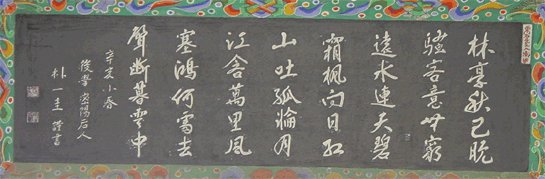 林亭秋已晩
騷客意無窮
遠水連天碧
霜楓向日紅
山吐孤輪月
江含萬里風
塞鴻何處去
聲斷暮雲中
辛亥小春
後學密陽后人
朴一圭謹書